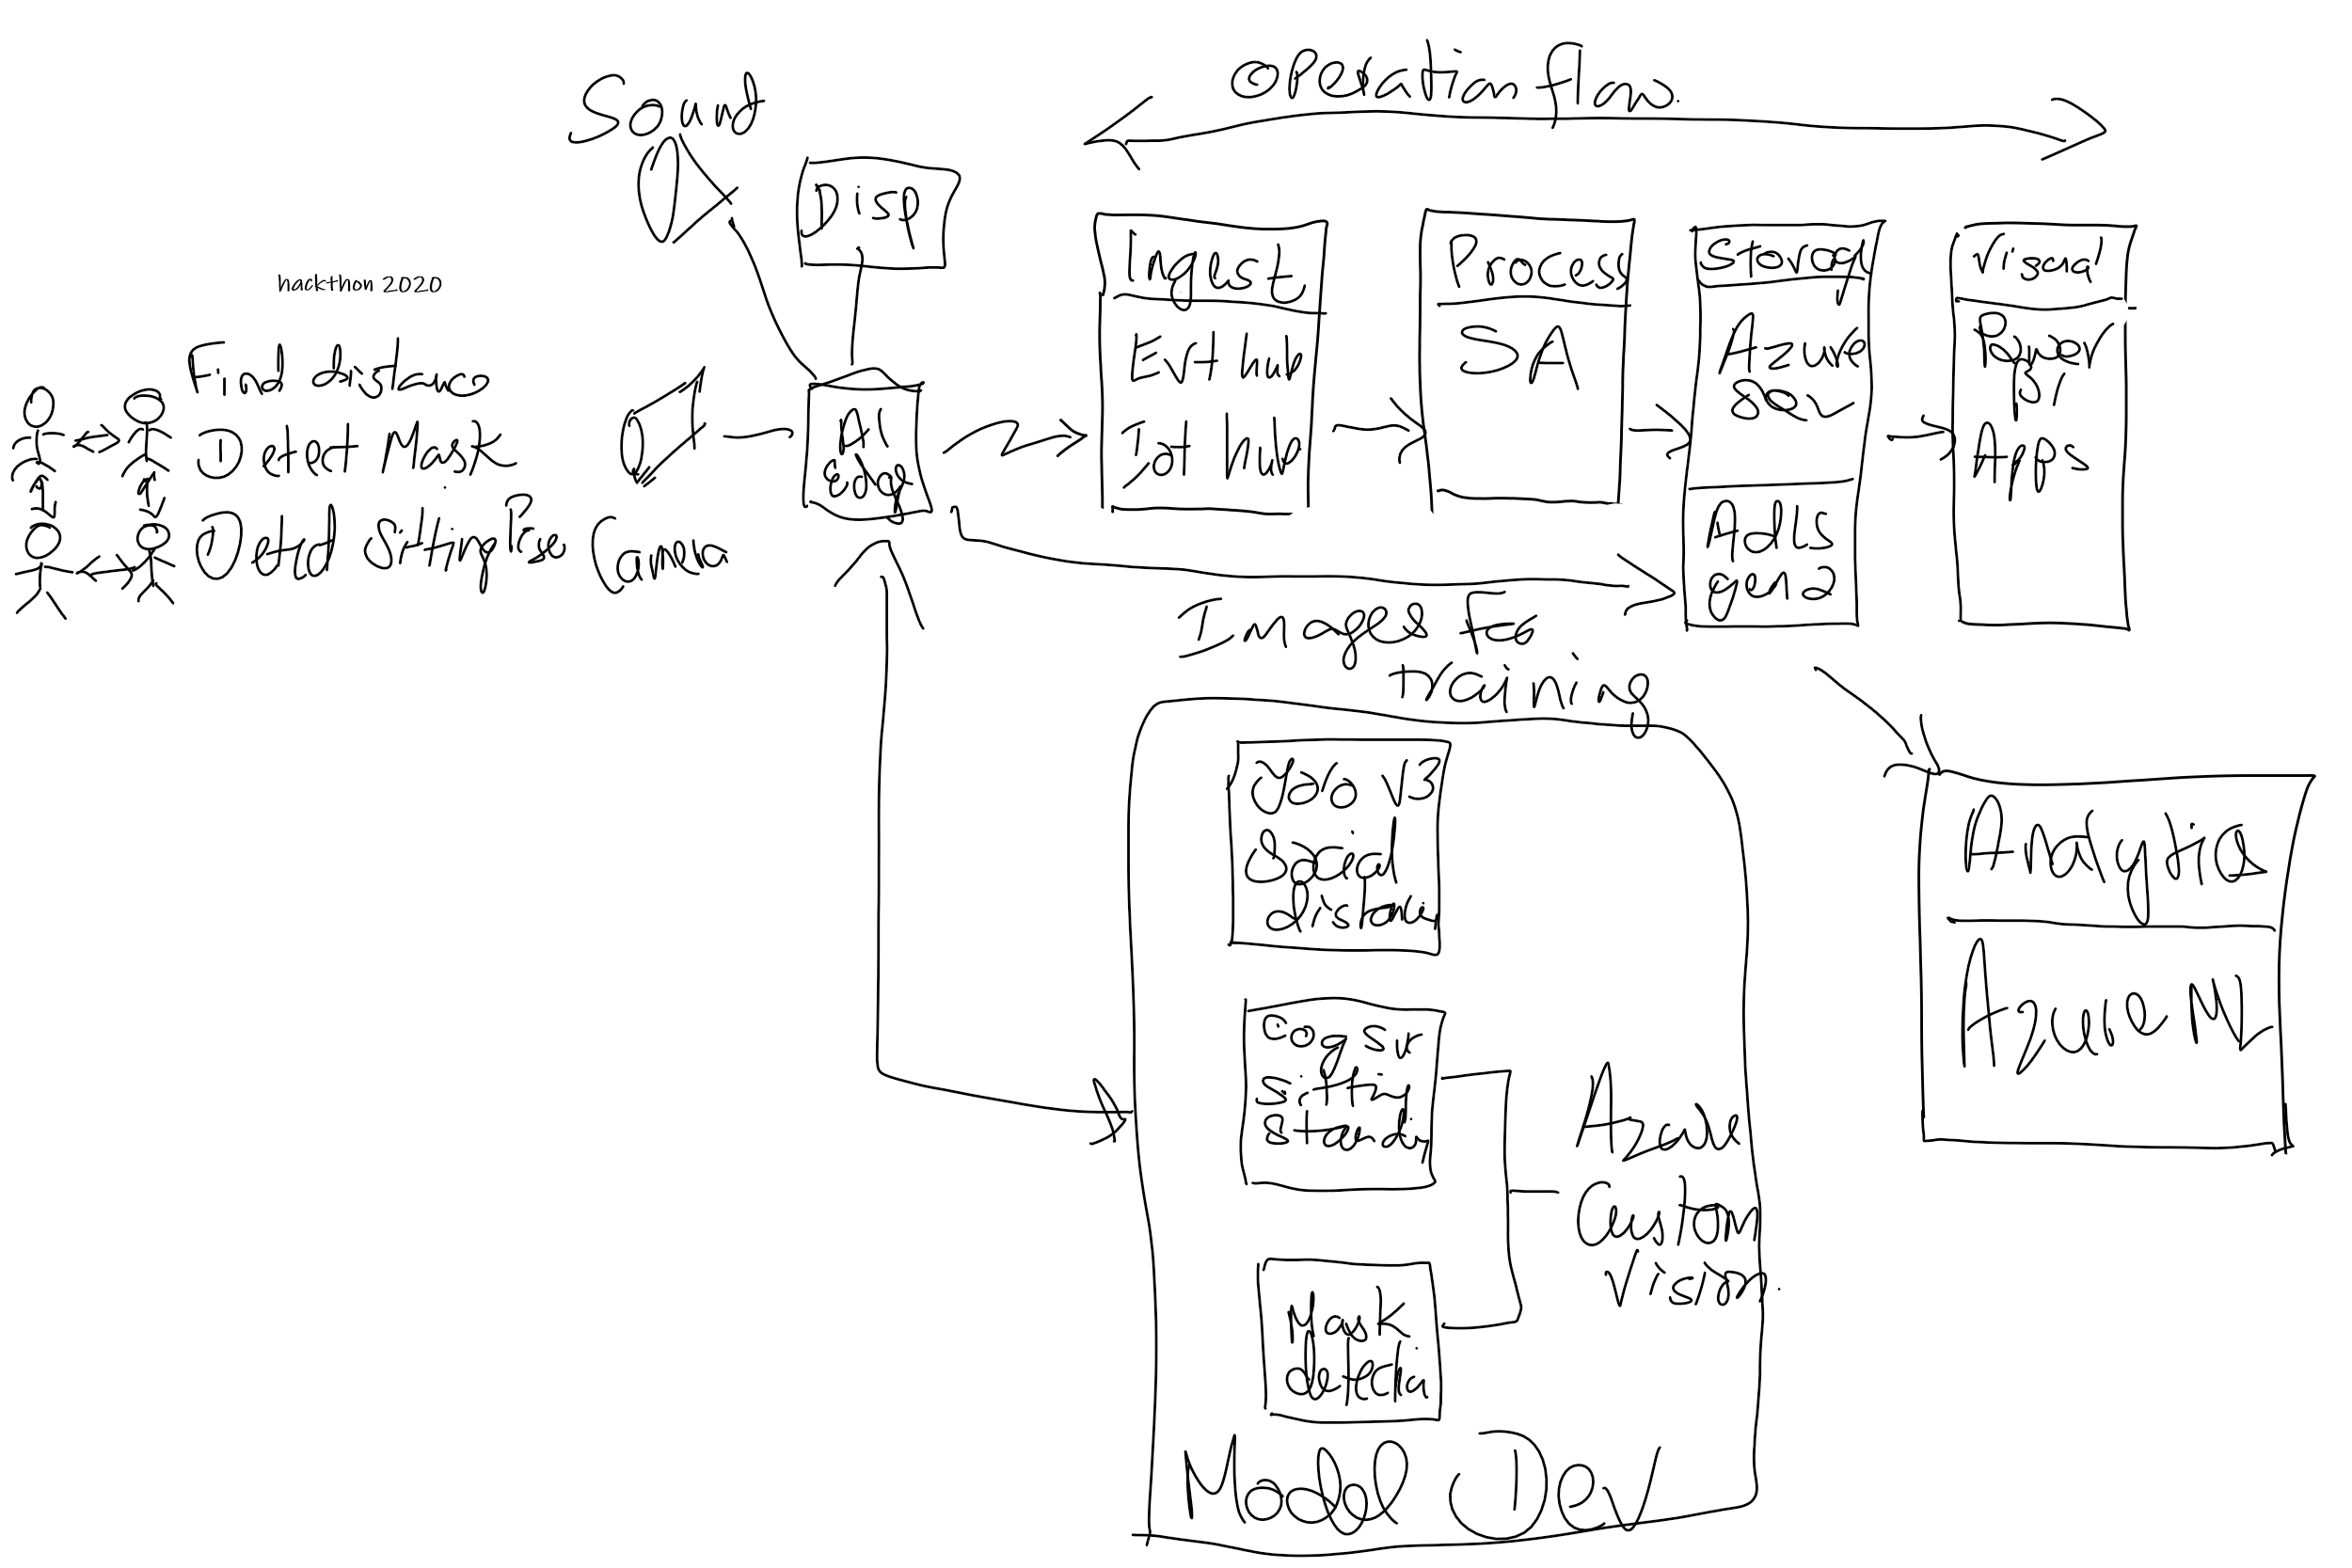 Operation flow.
Sound
Disp
hackthon 2020
Find distance
Detect Mask
Sitting
Camera
AI
edge
Ingest
Evt hub
Iot hub
Process
SA
Storag
Azure
Adls
gen2
Visual
Power
BI
Apps
Images For
training
Yolo v3
Social
distancing
Cog Sr
Sitting
Standing
Azure
Custom
Vision.
Mask
detection
Model Dev
Analytics
Azure Ml